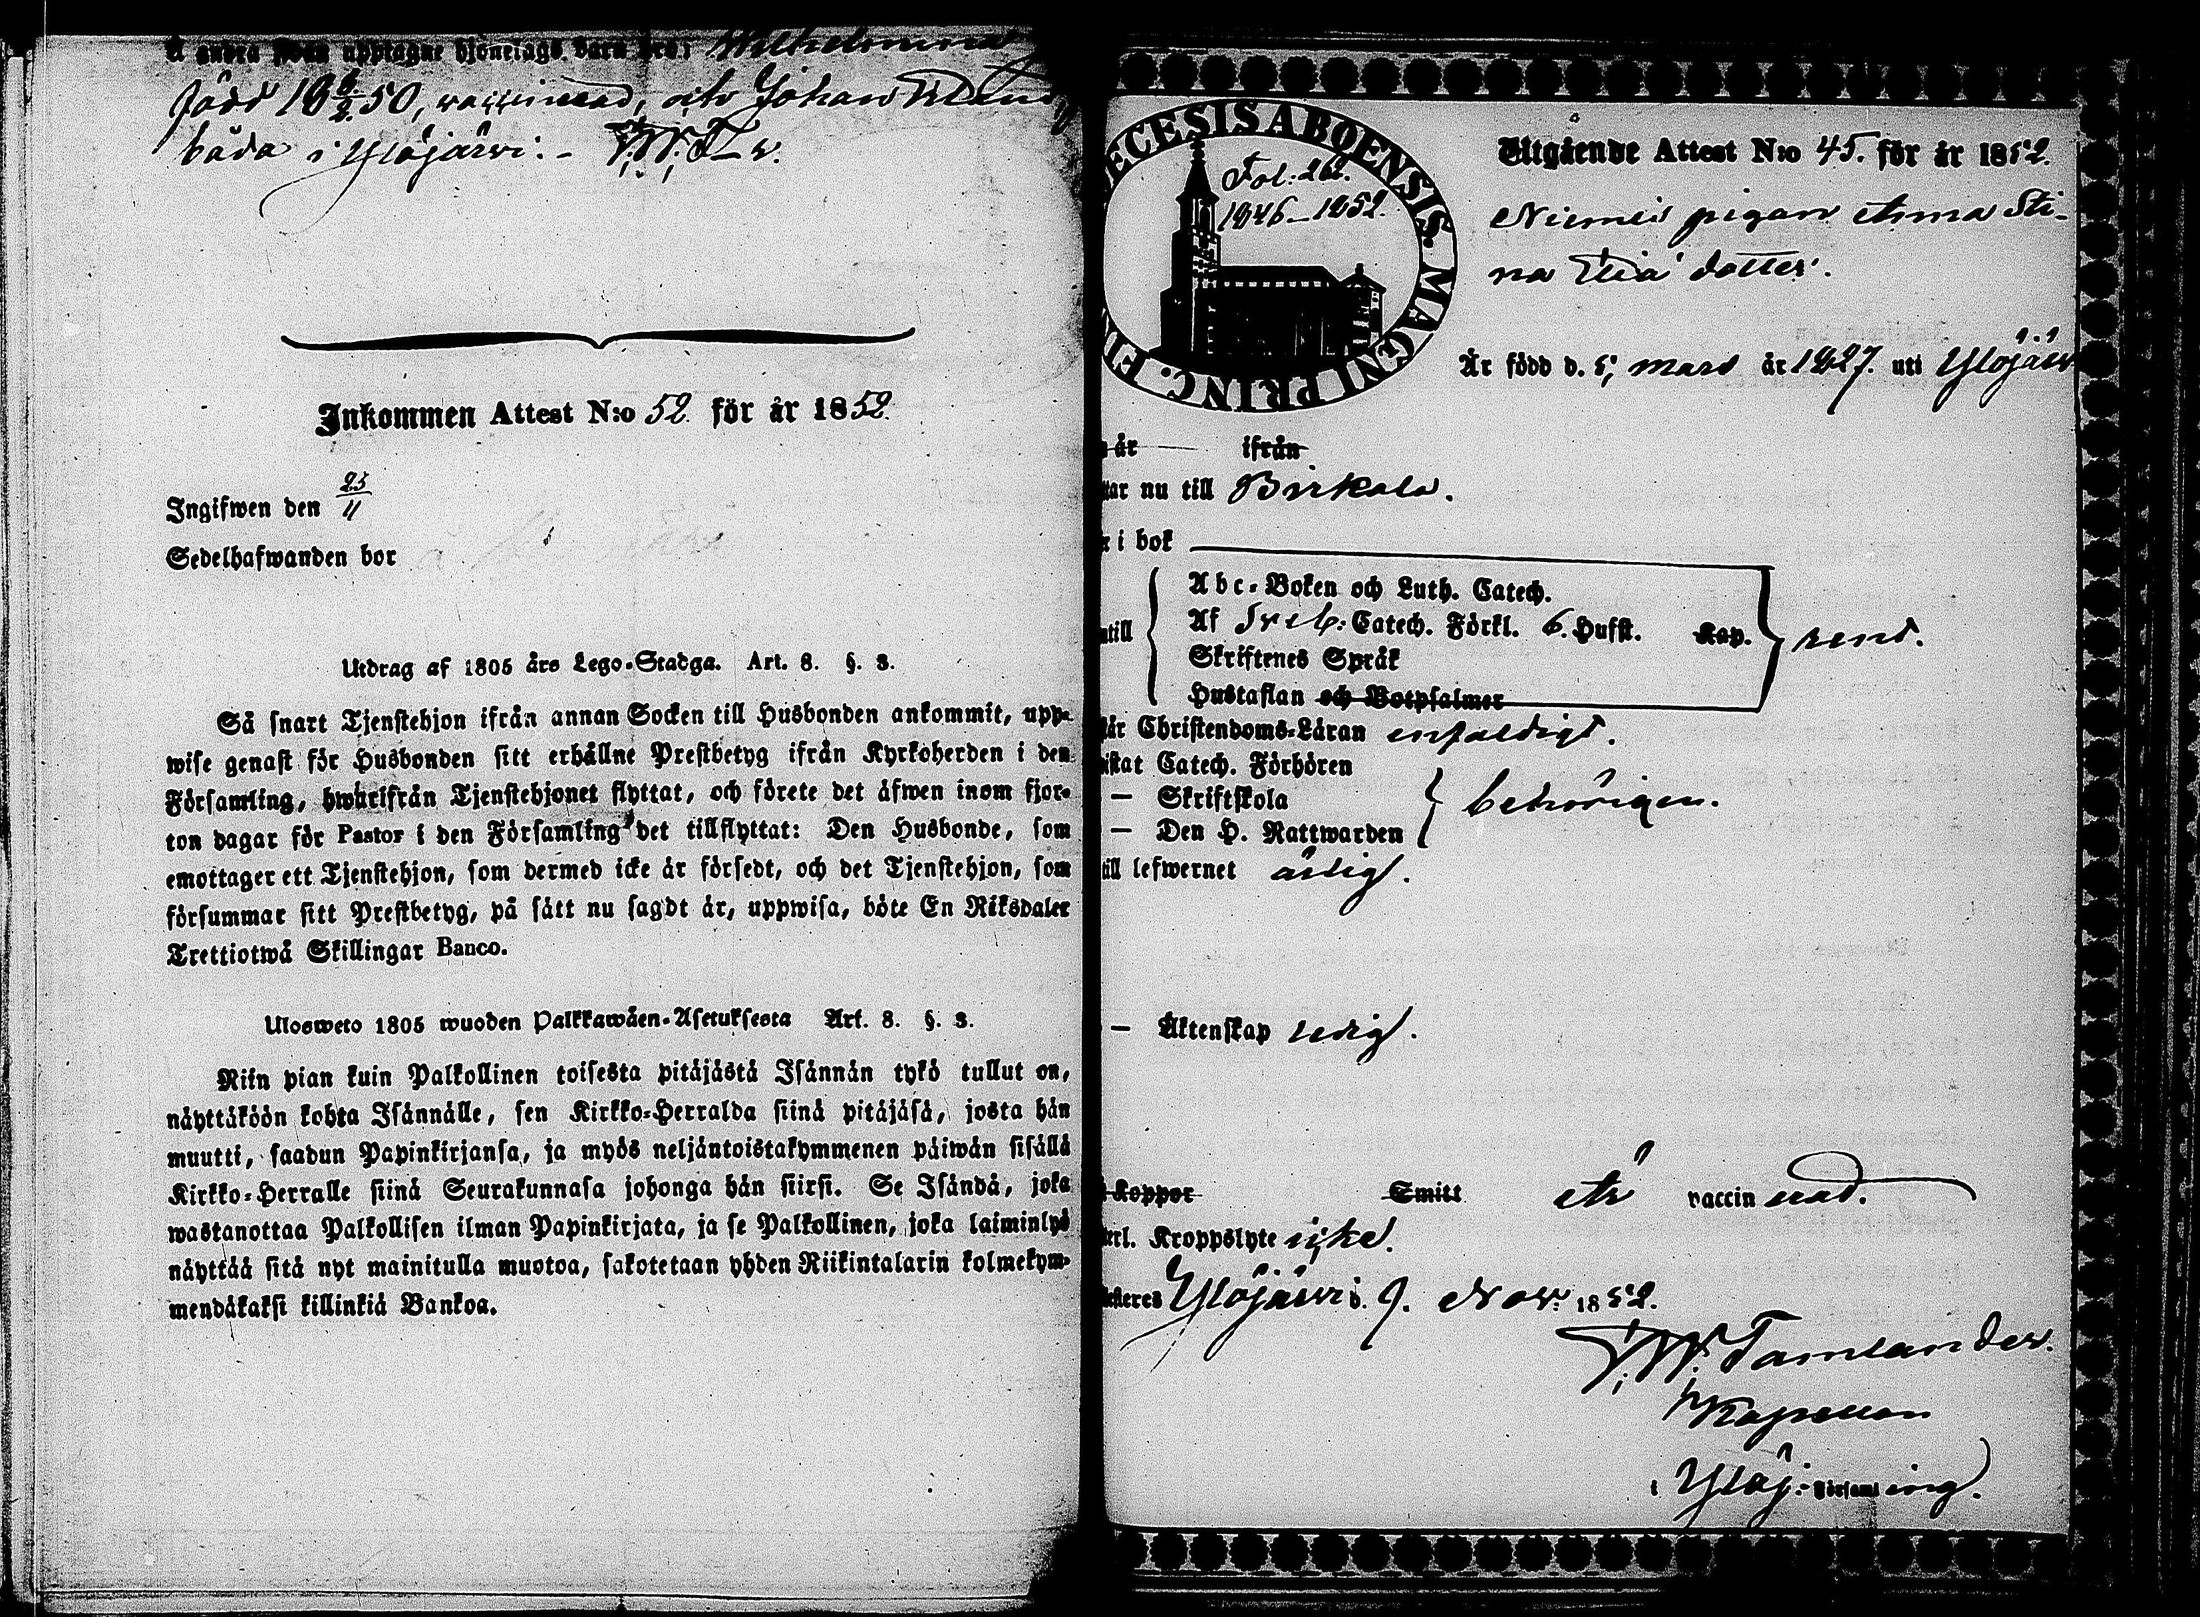 å andra sidan upptagne hjonelags barn äro: Wilhelmina
född 18 6/2 50, vaccinerad, och Johan
båda i Ylöjärvi. - F. W. T-r.
Inkommen Attest N:o 52. för år 1852.
Ingifwen den 25/11
Sedelhafwanden bor
Utdrag af 1805 års Lego-Stadga. Art. 8. §. 3.
Så snart Tjenstehjon ifrån annan Socken till Husbonden ankommit, upp-
wise genast för Husbonden sitt erhållne Prestbetyg ifrån Kyrkoherden i den
Församling, hwarifrån Tjenstehjonet flyttat, och förete det äfwen inom fjor-
ton dagar för Pastor i den Församling det tillflyttat: Den Husbonde, som
emottager ett Tjenstehjon, som dermed icke är försedt, och det Tjenstehjon, som
försummar sitt Prestbetyg, på sätt nu sagdt är, uppwisa, böte En Riksdaler
Trettiotwå Skillingar Banco.
Ulosweto 1805 wuoden Palkkawäen-Asetuksesta Art. 8. §. 3.
Niin pian kuin Palkollinen toisesta pitäjästä Isännän tykö tullut on,
näyttäköön kohta Isännälle, sen Kirkko-Herralda siinä pitäjäsä, josta hän
muutti, saadun Papinkirjansa, ja myös neljäntoistakymmenen päiwän sisällä
Kirkko-Herralle siinä Seurakunnasa johonga hän siirsi. Se Isändä, joka
wastanottaa Palkollisen ilman Papinkirjata, ja se Palkollinen, joka laiminlyö
näyttää sitä nyt mainitulla muotoa, sakotetaan yhden Riikintalarin kolmekym-
mendäkaksi killinkiä Bankoa.
ECESIS ABOENSIS. MAGNI PRINC. F
Fol: 262.
1846-1852.
Utgående Attest N:o 45. för år 1852.
Niemis pigan Anna Sti-
na Elia dotter.
Är född d. 5, mars år 1827. uti Ylöjärv
år ifrån
tar nu till Birkala.
i bok
Abc-Boken och Luth. Catech.
till Af Sveb: Catech. Förkl. 6. Hufst. Kap. rent.
Skriftenes Språk
Hustaflan och Botpsalmer
år Christendoms-Läran enfaldigt.
istat Catech. Förhören
— Skriftskola behörigen.
— Den H. Nattwarden
till lefwernet ärligt.
— Äktenskap ledig.
Koppor Smitt Är vaccinerad.
erl. Kroppslyte icke.
steres Ylöjärvi d. 9. Nov. 1852.
F. W. Tamlander.
Kapellan
i Ylöj. Församling.